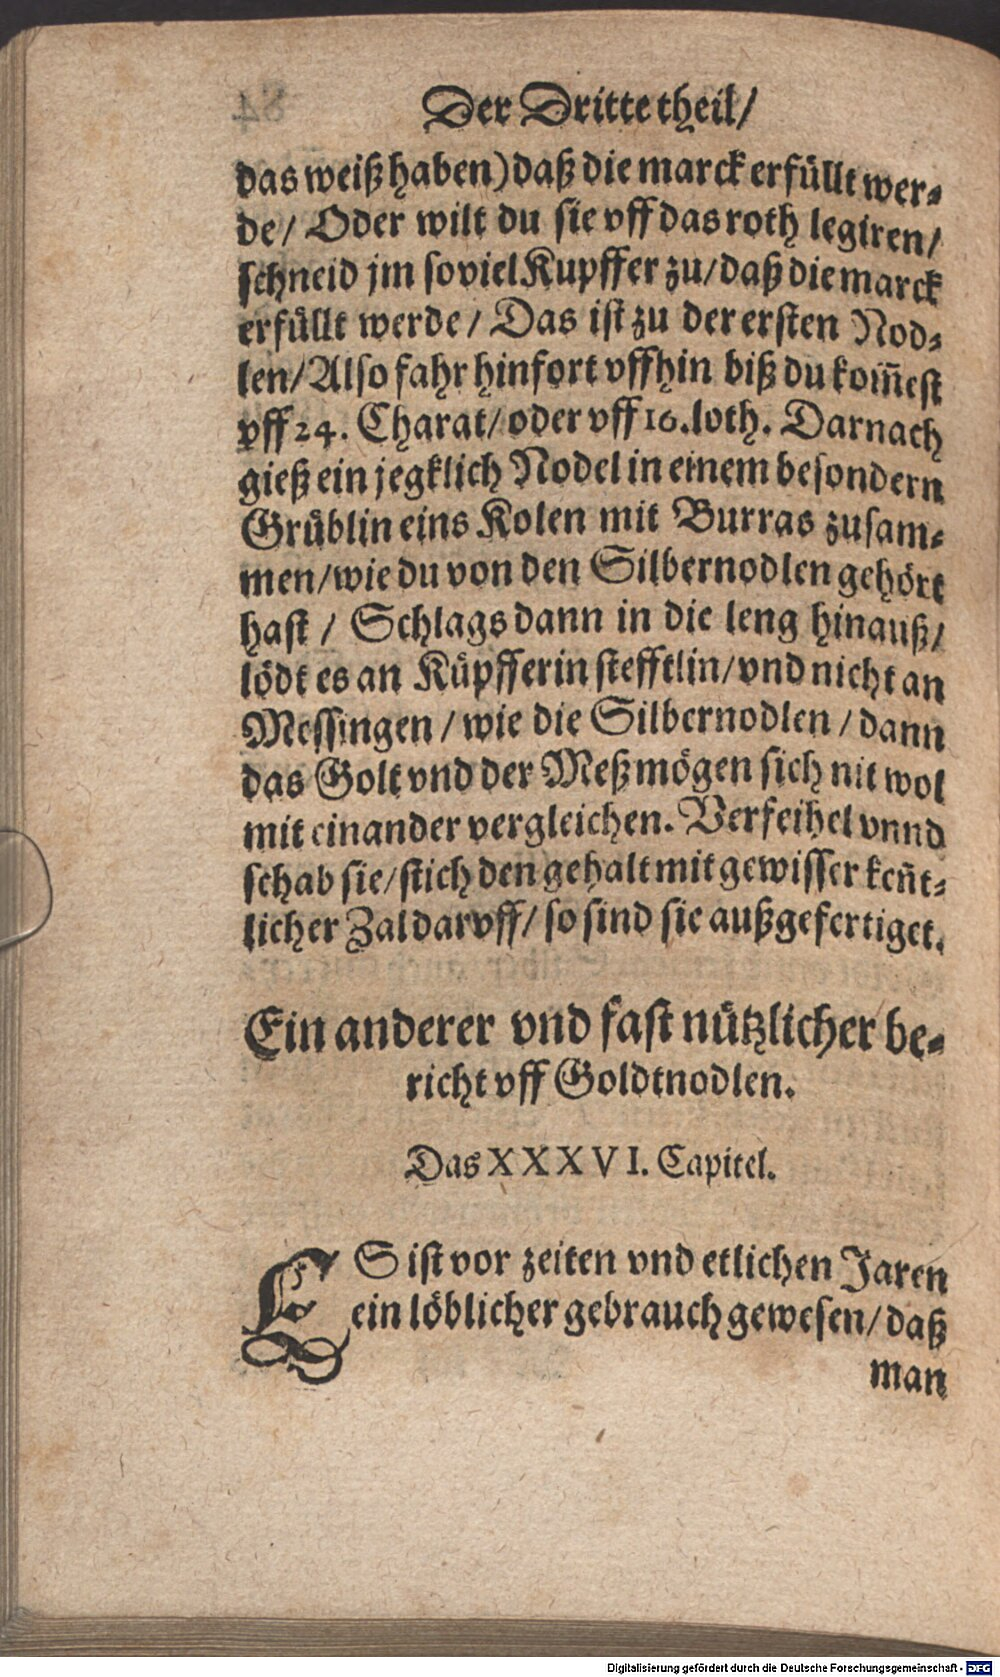 Der Dritte theil/
das weiß haben) daß die marck erfüllt wer-
de/ Oder wilt du sie vff das roth legiren/
schneid jm soviel Kupffer zu/ daß die marck
erfüllt werde/ Das ist zu der ersten Nod-
len/ Also fahr hinfort vffhin biß du kom̃est
vff 24. Charat/ oder vff 16. loth. Darnach
gieß ein jegklich Nodel in einem besondern
Grüblin eins Kolen mit Burras zusam-
men/ wie du von den Silbernodlen gehört
hast/ Schlags dann in die leng hinauß/
lödt es an Küpfferin stefftlin/ vnd nicht an
Messingen/ wie die Silbernodlen/ dann
das Golt vnd der Meß mögen sich nit wol
mit einander vergleichen. Verfeihel vnnd
schab sie/ stich den gehalt mit gewisser keñt-
licher Zal darvff/ so sind sie außgefertiget.
Ein anderer vnd fast nützlicher be-
richt vff Goldtnodlen.
Das XXXVI. Capitel.
ES ist vor zeiten vnd etlichen Jaren
ein löblicher gebrauch gewesen/ daß
man
Digitalisierung gefördert durch die Deutsche Forschungsgemeinschaft - DFG